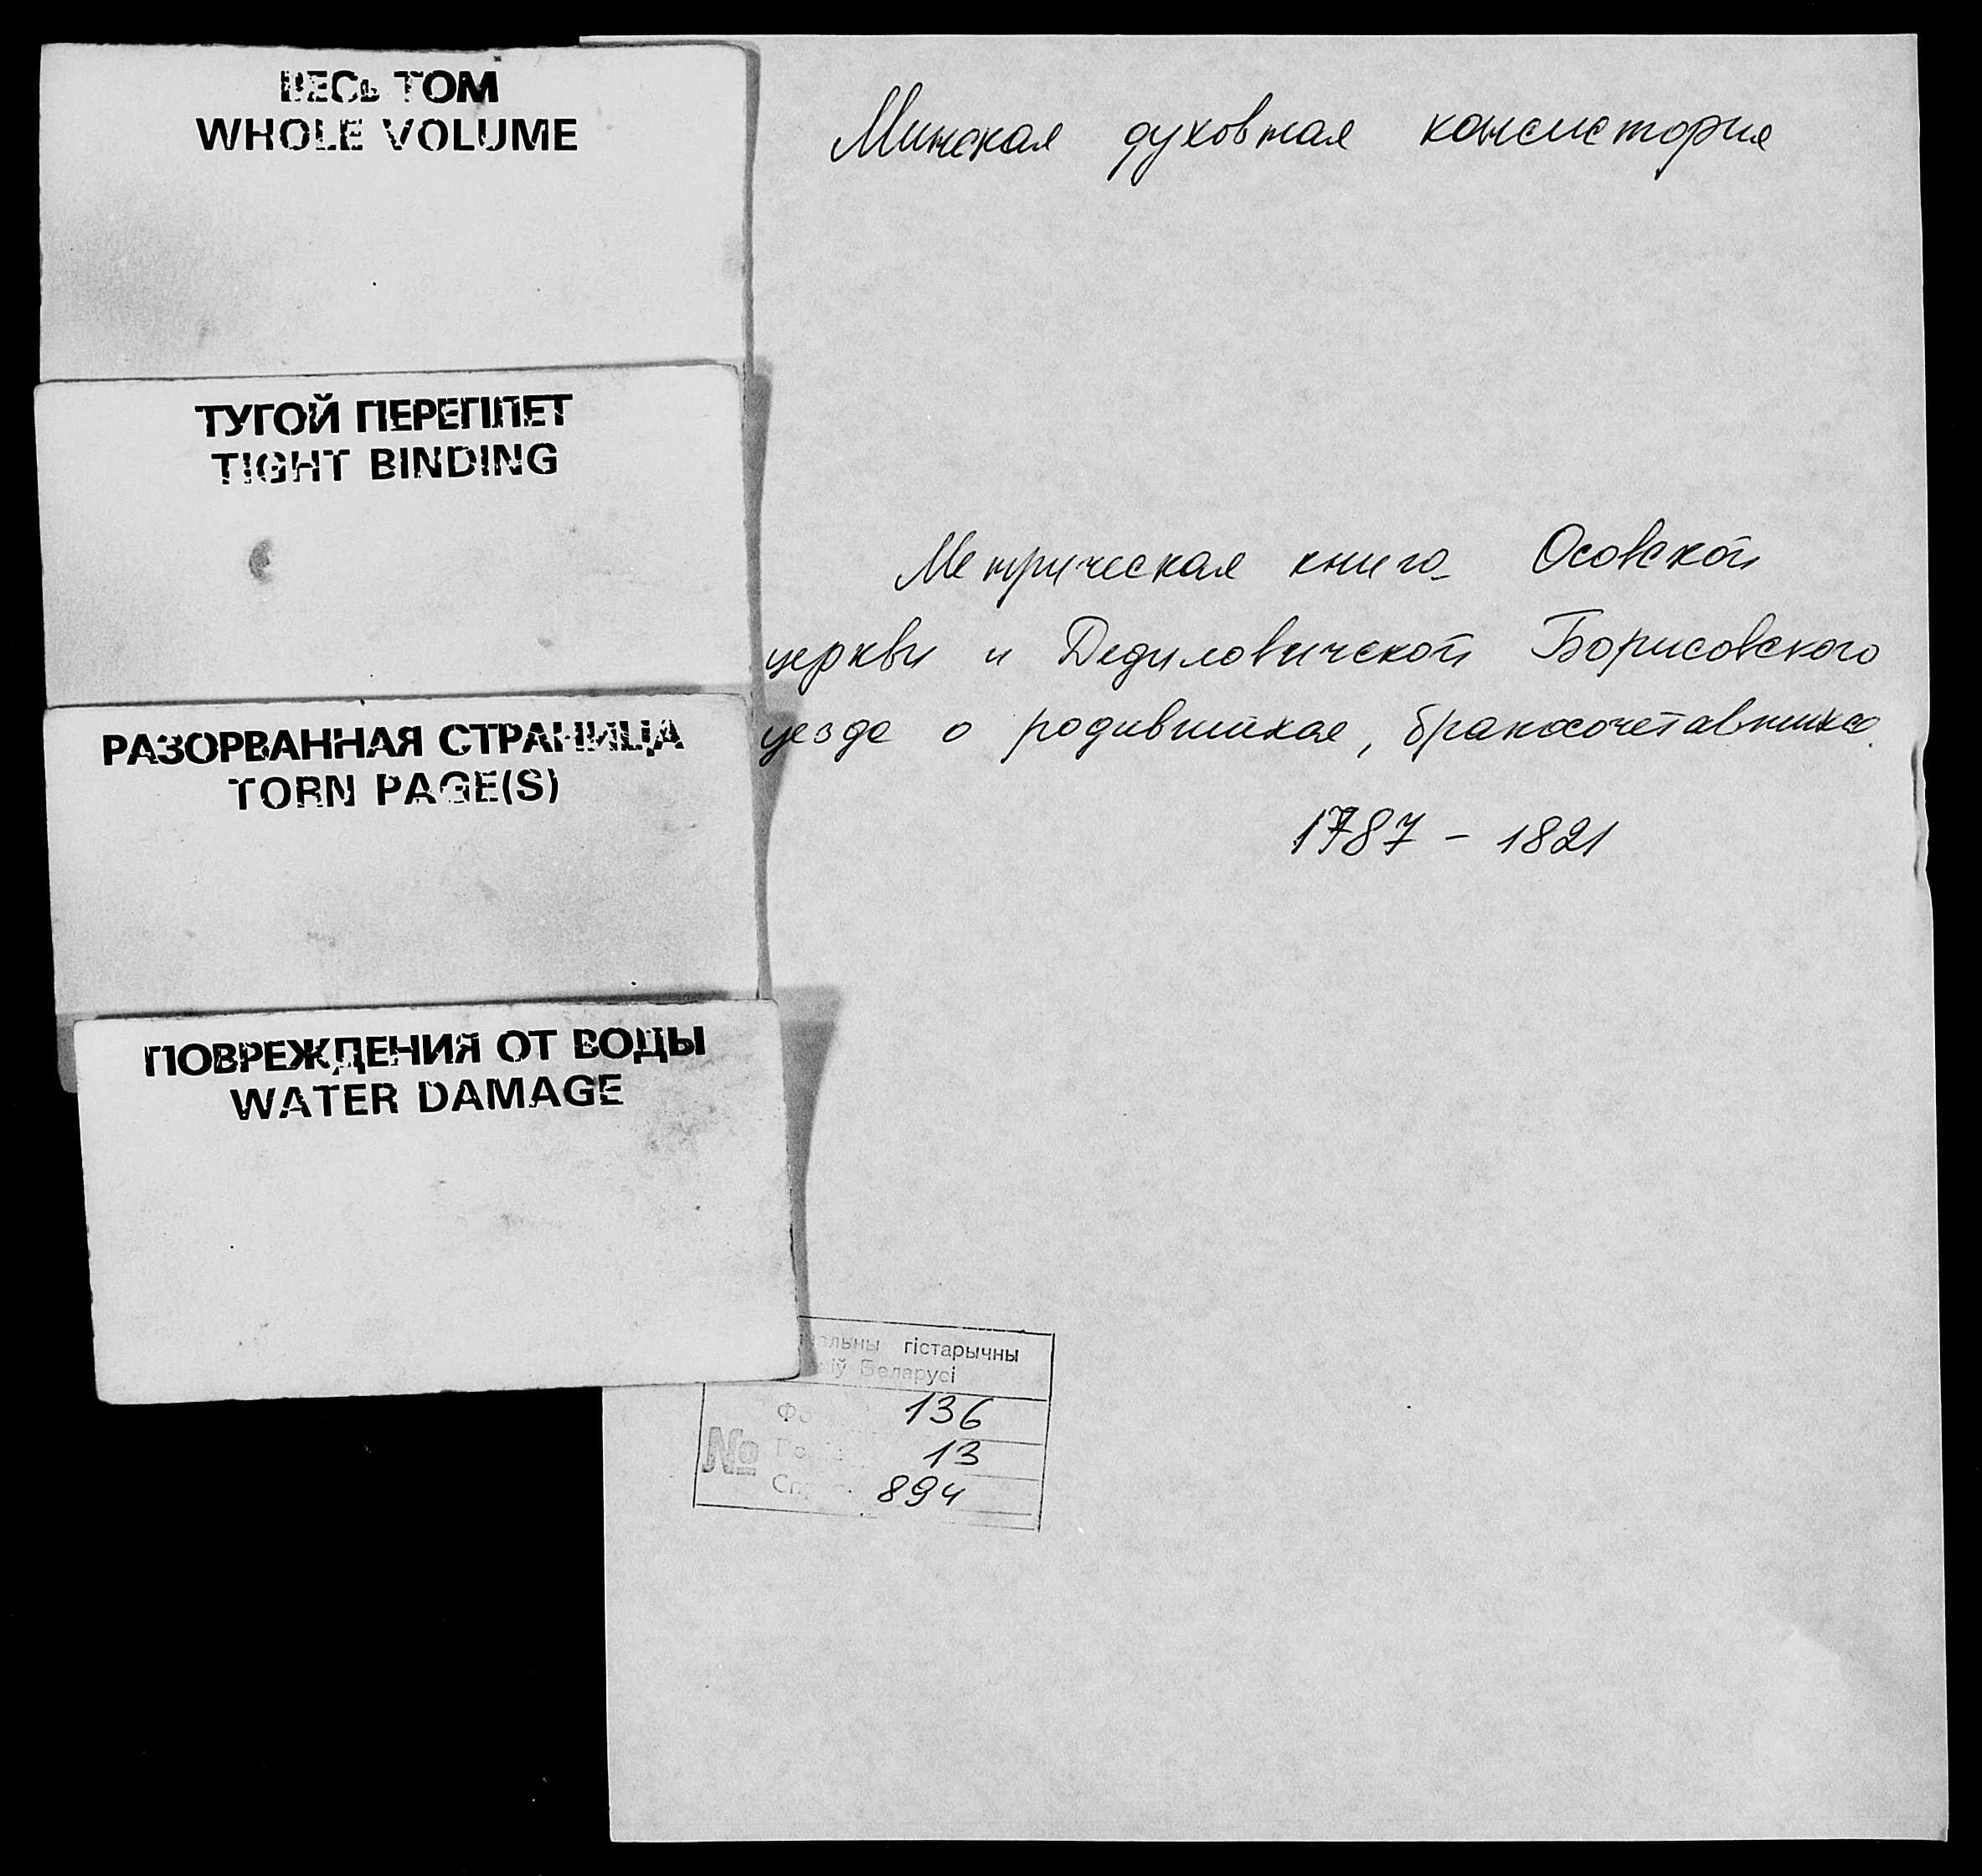 ВЕСЬ ТОМ
WHOLE VOLUME
ТУГОЙ ПЕРЕПЛЕТ
TIGHT BINDING
РАЗОРВАННАЯ СТРАНИЦА
TORN PAGE(S)
ПОВРЕЖДЕНИЯ ОТ ВОДЫ
WATER DAMAGE
Минская духовная консистория
Метрическая книга Осовской
церкви и Дедиловичской Борисовского
уезда о родившихся, бракосочетавшихся
1787 – 1821
гістарычны
Беларусі
136
№ 13
894